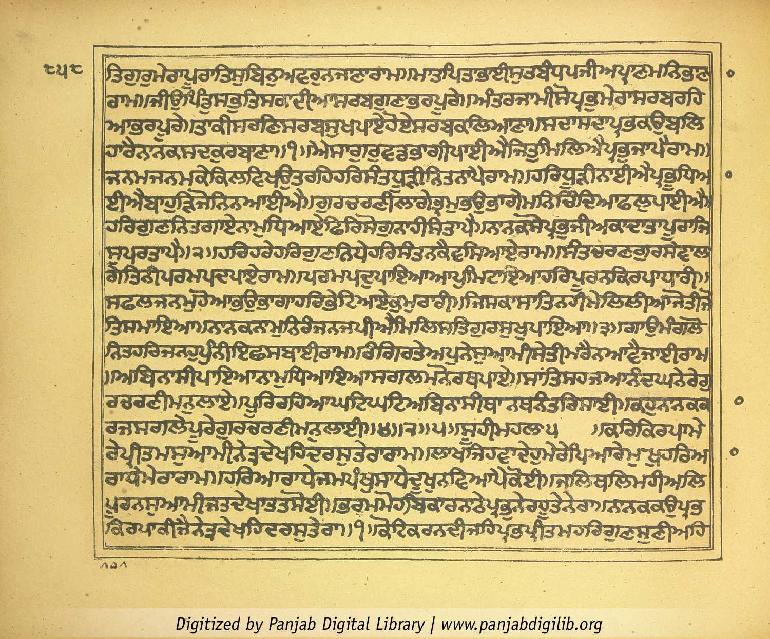 ੮੫੮
ਤਿਗੁਰੁਮੇਰਾਪੂਰਾਤਿਸੁਬਿਨੁਅਵਰੁਨਜਾਣਾਰਾਮ॥ਮਾਤਪਿਤਾਭਾਈਸੁਤਬੰਧਪਜੀਅਪ੍ਰਾਣਮਨਿਭਾਣਾ
ਰਾਮ॥ਜੀਉਪਿੰਡੁਸਭੁਤਿਸਕਾਦੀਆਸਰਬਗੁਣਾਭਰਪੂਰੇ॥ਅੰਤਰਜਾਮੀਸੋਪ੍ਰਭੁਮੇਰਾਸਰਬਰਹਿ
ਆਭਰਪੂਰੇ॥ਤਾਕੀਸਰਣਿਸਰਬਸੁਖਪਾਏਹੋਏਸਰਬਕਲਿਆਣਾ॥ਸਦਾਸਦਾਪ੍ਰਭਕਉਬਲਿ
ਹਾਰੈਨਾਨਕਸਦਕੁਰਬਾਣਾ॥੧॥ਐਸਾਗੁਰੁਵਡਭਾਗੀਪਾਈਐਜਿਤੁਮਿਲਿਐਪ੍ਰਭੁਜਾਪੈਰਾਮ॥
ਜਨਮਜਨਮਕੇਕਿਲਵਿਖਉਤਰਹਿਹਰਿਸੰਤਧੂੜੀਨਿਤਨਾਪੈਰਾਮ॥ਹਰਿਧੂੜੀਨਾਈਐਪ੍ਰਭੂਧਿਆ
ਈਐਬਾਹੁੜਿਜੋਨਿਨਆਈਐ॥ਗੁਰਚਰਣੀਲਾਗੇਭ੍ਰਮਭਉਭਾਗੇਮਨਿਚਿੰਦਿਆਫਲੁਪਾਈਐ॥
ਹਰਿਗੁਣਨਿਤਗਾਏਨਾਮੁਧਿਆਏਫਿਰਿਸੋਗੁਨਾਹੀਸੰਤਾਪੈ॥ਨਾਨਕਸੋਪ੍ਰਭੁਜੀਅਕਾਦਾਤਾਪੂਰਾਜਿ
ਸੁਪਰਤਾਪੈ॥੨॥ਹਰਿਹਰੇਹਰਿਗੁਣਨਿਧੇਹਰਿਸੰਤਨਕੈਵਸਿਆਏਰਾਮ॥ਸੰਤਚਰਣਗੁਰਸੇਵਾਲਾ
ਗੇਤਿਨੀਪਰਮਪਦਪਾਏਰਾਮ॥ਪਰਮਪਦੁਪਾਇਆਆਪੁਮਿਟਾਇਆਹਰਿਪੂਰਨਕਿਰਪਾਧਾਰੀ॥
ਸਫਲਜਨਮੁਹੋਆਭਉਭਾਗਾਹਰਿਭੇਟਿਆਏਕੁਮੁਰਾਰੀ॥ਜਿਸਕਾਸਾਤਿਨਹੀਮੇਲਿਲੀਆਜੋਤੀਜੋ
ਤਿਸਮਾਇਆ॥ਨਾਨਕਨਾਮੁਨਿਰੰਜਨਜਪੀਐਮਿਲਿਸਤਿਗੁਰਸੁਖੁਪਾਇਆ॥੩॥ਗਾਉਮੰਗਲੋ
ਨਿਤਹਰਿਜਨਹੁਪੁੰਨੀਇਛਸਬਾਈਰਾਮ॥ਰੰਗਿਰਤੇਅਪੁਨੇਸੁਆਮੀਸੇਤੀਮਰੈਨਆਵੈਜਾਈਰਾਮ
॥ਅਬਿਨਾਸੀਪਾਇਆਨਾਮੁਧਿਆਇਆਸਗਲਮਨੋਰਥਪਾਏ॥ਸਾਂਤਿਸਹਜਆਨੰਦਘਨੇਰੇਗੁ
ਰਚਰਣੀਮਨੁਲਾਏ॥ਪੂਰਿਰਹਿਆਘਟਿਘਟਿਅਬਿਨਾਸੀਥਾਨਥਨੰਤਰਿਸਾਈ॥ਕਹੁਨਾਨਕਕਾ
ਰਜਸਗਲੇਪੂਰੇਗੁਰਚਰਣੀਮਨੁਲਾਈ॥੪॥੨॥੫॥ਸੂਹੀਮਹਲਾ੫ ॥ਕਰਿਕਿਰਪਾਮੇ
ਰੇਪ੍ਰੀਤਮਸੁਆਮੀਨੇਤ੍ਰਦੇਖਹਿਦਰਸੁਤੇਰਾਰਾਮ॥ਲਾਖਜਿਹਵਾਦੇਹੁਮੇਰੇਪਿਆਰੇਮੁਖੁਹਰਿਆ
ਰਾਧੇਮੇਰਾਰਾਮ॥ਹਰਿਆਰਾਧੇਜਮਪੰਥੁਸਾਧੇਦੂਖੁਨਵਿਆਪੈਕੋਈ॥ਜਲਿਥਲਿਮਹੀਅਲਿ
ਪੂਰਨਸੁਆਮੀਜਤਦੇਖਾਤਤਸੋਈ॥ਭਰਮਮੋਹਬਿਕਾਰਨਾਠੇਪ੍ਰਭੁਨੇਰਹੂਤੇਨੇਰਾ॥ਨਾਨਕਕਉਪ੍ਰਭ
ਕਿਰਪਾਕੀਜੈਨੇਤ੍ਰਦੇਖਹਿਦਰਸੁਤੇਰਾ॥੧॥ਕੋਟਿਕਰਨਦੀਜਹਿਪ੍ਰਭਪ੍ਰੀਤਮਹਰਿਗੁਣਸੁਣੀਅਹਿ
Digitized by Panjab Digital Library | www.panjabdigilib.org